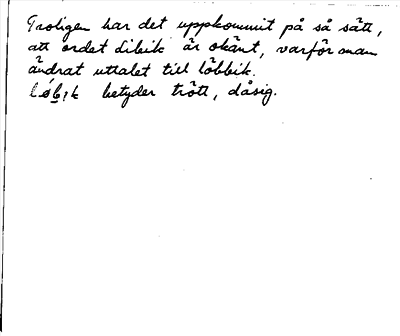 Troligen har det uppkommit på så sätt,
att ordet libik är okänt, varför man
ändrat uttalet till löbbik.
betyder trött, dåsig.